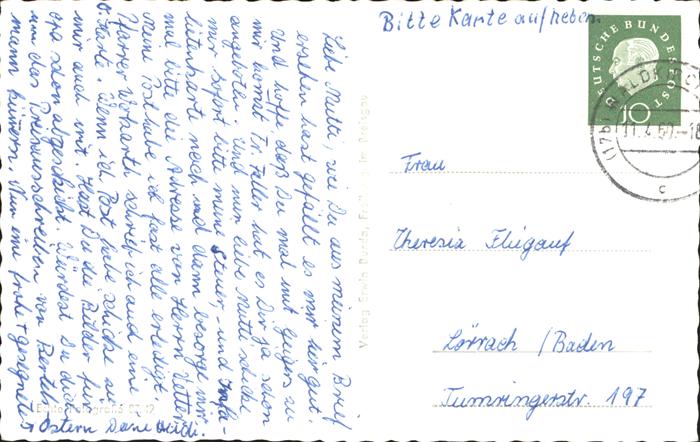 Bitte Karte aufheben.
DEUTSCHE BUNDESPOST
10
(17b) WALDKIRCH
11.4.60.-18
c
Frau
Theresia Fliegauf
Lörrach / Baden
Tumringerstr. 197
Verlag Erwin Burda, Freiburg im Breisgau
Liebe Mutti, wie Du aus meinem Brief
ersehen hast gefällt es mir hier gut.
Und hoffe, daß Du mal mit Geigers zu
mir kommst. Fr. Faller hat es Dir ja schon
angeboten. Und nun liebe Mutti schicke
mir sofort bitte meine Steuer- und Inva-
lidenkarte nach und dann besorge mir
mal bitte die Adresse von Herrn Vetter.
Meine Post habe ich fast alle erledigt.
Pfarrer schrieb ich auch eine
Karte. Wenn ich Post habe schicke sie
mir auch mit. Hast Du die Bilder für
schon abgeschickt. Würdest Du dich
um das Preisausschreiben von Bertels-
mann kümmern. Nun eine frohe + gesegnete
Ostern Deine Heidi.